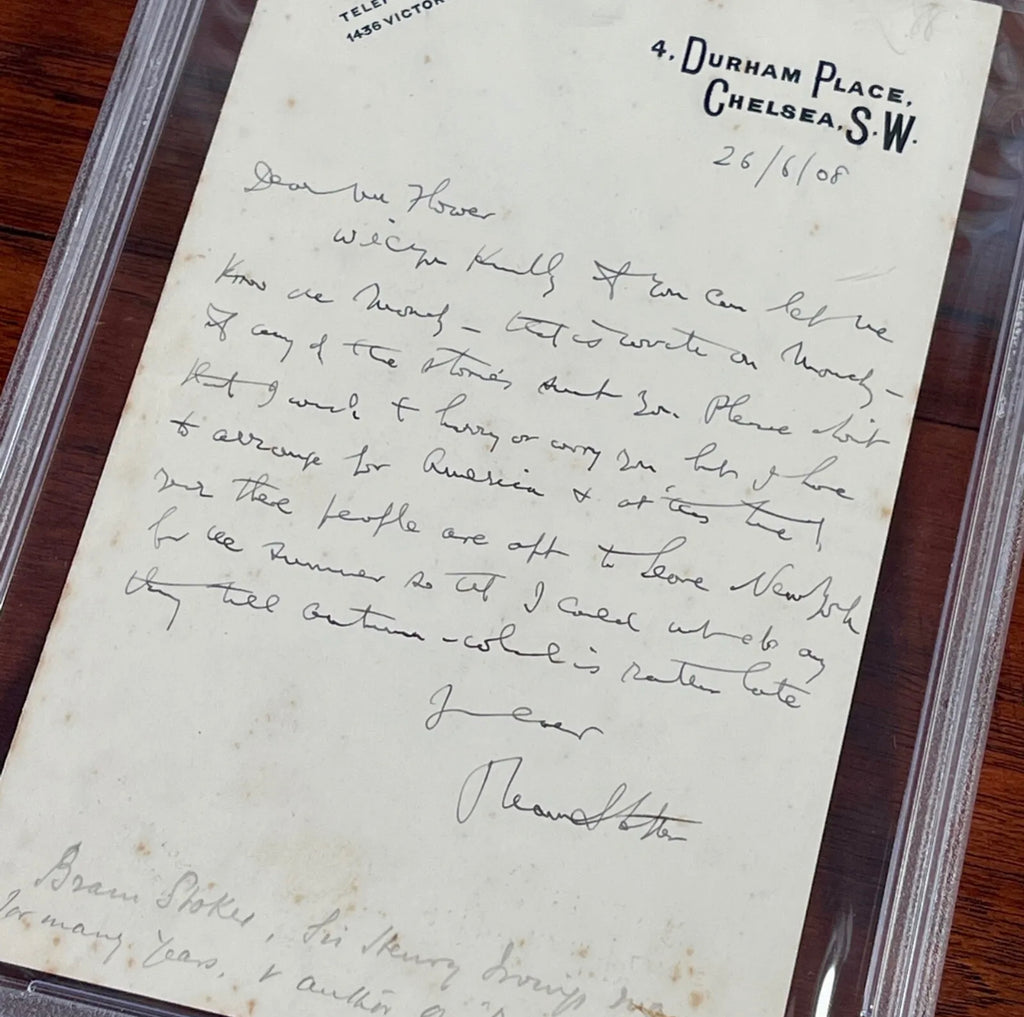 TELE
1436 VICTOR
4, DURHAM PLACE,
CHELSEA, S.W.
26/6/08
Dear Mr Flower
kindly if you can let me
know on Monday – that is write on Monday –
if any of the stories suit you. Please don't
that I wish to hurry or worry you but I have
to arrange for America & at this time of
year these people are apt to leave New York
for the summer so that I could not do any
thing till autumn – which is rather late
Yours ever
Bram Stoker
Bram Stoker, Sir Henry Irving's
for many years, & author